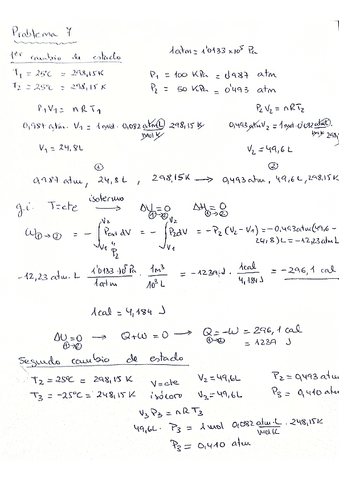 Problema 7
1er cambio de estado
1atm = 1'0133 × 10⁵ Pa
T₁ = 25ºC = 298,15K P₁ = 100 KPa = 0'987 atm
T₂ = 25ºC = 298,15K P₂ = 50 KPa = 0'493 atm
P₁V₁ = nRT₁ P₂V₂ = nRT₂
0,987 atm · V₁ = 1mol · 0,082 atm·L/mol·K · 298,15K 0,493 atm V₂ = 1mol · 0,082 atm·L/mol·K · 298,15K
V₁ = 24,8L V₂ = 49,6L
① ②
0,987 atm, 24,8L, 298,15K → 0,493 atm, 49,6L, 298,15K
g.i. T=cte isotermo → ΔU = 0 ①→② ΔH = 0 ①→②
W①→② = -∫V₁V₂ Pext dV = -∫V₁V₂ P₂dV = -P₂(V₂-V₁) = -0,493atm(49,6-24,8)L = -12,23atm·L
P₂
-12,23 atm·L · 1'0133·10⁵ Pa/1atm · 1m³/10³L = -1239 J · 1cal/4,184 J = -296,1 cal
1cal = 4,184 J
ΔU = 0 ①→② → Q+W = 0 → Q = -W = 296,1 cal ①→②
= 1239 J
Segundo cambio de estado
T₂ = 25ºC = 298,15 K V=cte V₂ = 49,6L P₂ = 0,493 atm
T₃ = -25ºC = 248,15 K isócoro V₃ = 49,6L P₃ = 0,410 atm
V₃P₃ = nRT₃
49,6L · P₃ = 1mol 0,082 atm·L/mol·K · 248,15K
P₃ = 0,410 atm